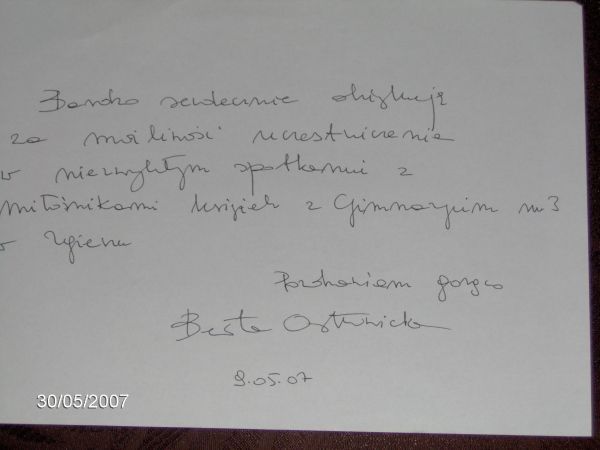 Bardzo serdecznie dziękuję
za możliwość uczestniczenia
w niezwykłym spotkaniu z
miłośnikami książek z Gimnazjum nr 3
w Zgierzu
Pozdrawiam gorąco
Beata Ostrowicka
9.05.07
30/05/2007